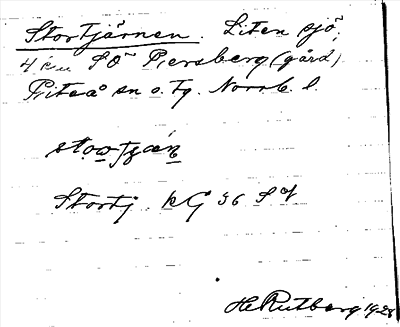 Stortjärnen. Liten sjö,
4 km SÖ Persberg (gård)
Piteå sn o. tg. Norrb. l.
Stortj. KG 36 SV
H. Rutberg 1928